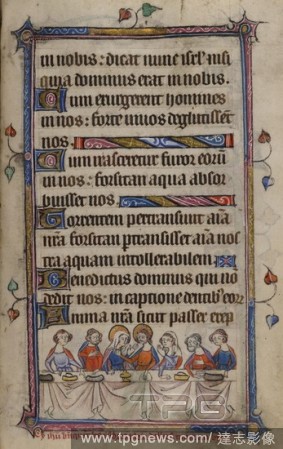 in nobis: dicat nunc isrl' nisi
quia dominus erat in nobis.
Cum exurgerent homines
in nos: forte uiuos deglutissent
nos.
Cum irasceretur furor eorū
in nos: forsitan aqua absor
buisset nos.
Torrentem pertransiuit aīa
nrā forsitan pertransisset aīa nos
tra aquam intollerabilem.
Benedictus dominus qui nō
dedit nos: in captione dentib; eorū
Anima nrā sicut passer erep
TPG
www.tpgnews.com/達志影像